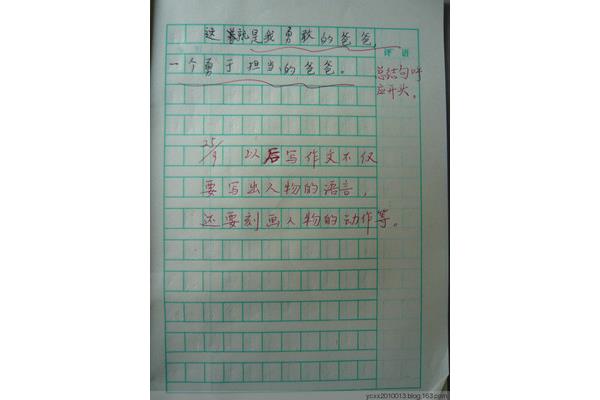 这就是我勇敢的爸爸，
评 语
一个勇于担当的爸爸。
总结句呼
应开头。
25/9 以后写作文不仅
要写出人物的语言，
还要刻画人物的动作等。
ycxx2010013.blog.163.com